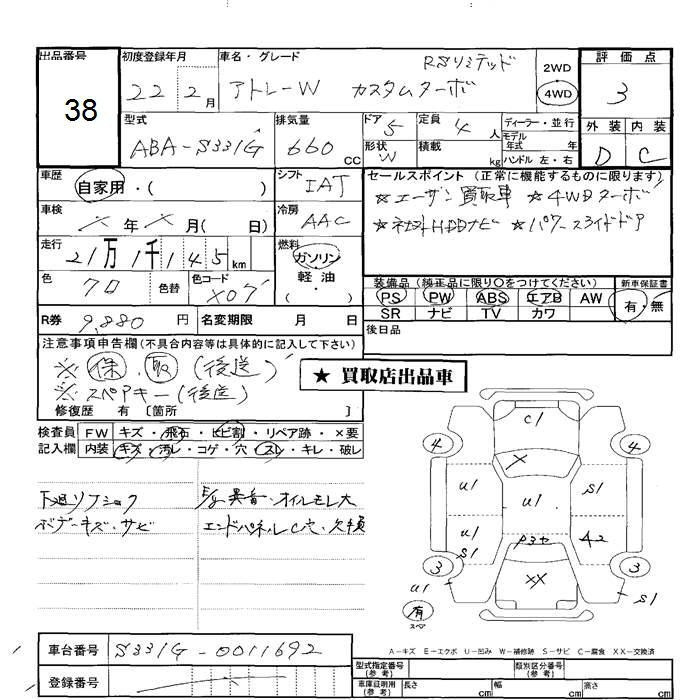 出品番号 初度登録年月 車名・グレード RSリミテッド 評価点
38 22年2月 アトレーW カスタムターボ 2WD 4WD 3
型式 排気量 ドア 5 定員 4人 ディーラー・並行 外装 内装
ABA-S331G 660cc 形状 W 積載 kg モデル年式 年 ハンドル 左・右 D C
車歴 自家用・( ) シフト IAT セールスポイント (正常に機能するものに限ります)
車検 年 月( 日) 冷房 AAC ☆エーザン買取車 ☆4WDターボ
☆社外HDDナビ ☆パワースライドドア
走行 21万1千145km 燃料 ガソリン 軽油・( )
装備品 (純正品に限り○をつけてください) 新車保証書
色 クロ 色替 色コード X07 PS PW ABS エアB AW 有・無
SR ナビ TV カワ
R券 9,880円 名変期限 月 日 後日品
注意事項申告欄(不具合内容等は具体的に記入して下さい)
※保・取(後送)
※スペアキー(後送)
★ 買取店出品車
修復歴 有 〔箇所 〕
検査員 FW キズ・飛石・ヒビ割・リペア跡・×要
記入欄 内装 キズ・汚レ・コゲ・穴・スレ・キレ・破レ
下廻りフショク E/g異音・オイルモレ大
ボデーキズ・サビ エンドパネルC穴・欠損
C1
4 4
X
U1 U1 S1
U1 S1 A2
3 XX 3
U1 S1
有
スペア
A-キズ E-エクボ U-凹み W-補修跡 S-サビ C-腐食 XX-交換済
車台番号 S331G-0011692
型式指定番号(参考) 類別区分番号(参考)
登録番号 車庫証明用(参考) 長さ cm 幅 cm 高さ cm